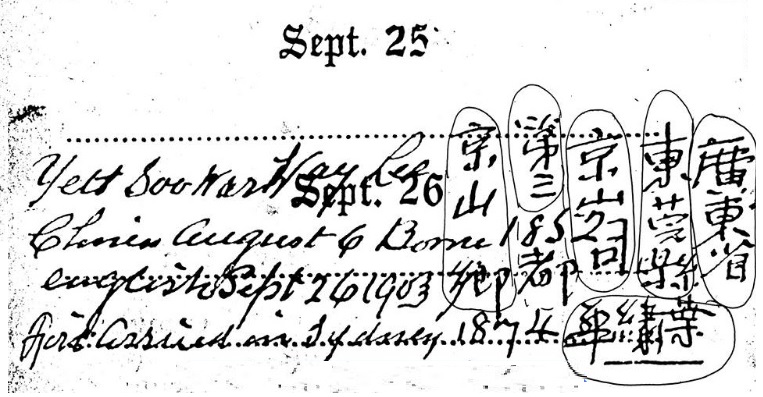 Sept. 25
Yett Soo War Way Lee
Sept. 26
Chines August 6 Born 185
english Sept 26 1903
first arrived in Sydney 1874
廣東省
東莞縣
京山司
第三都
京山鄉
葉繡華